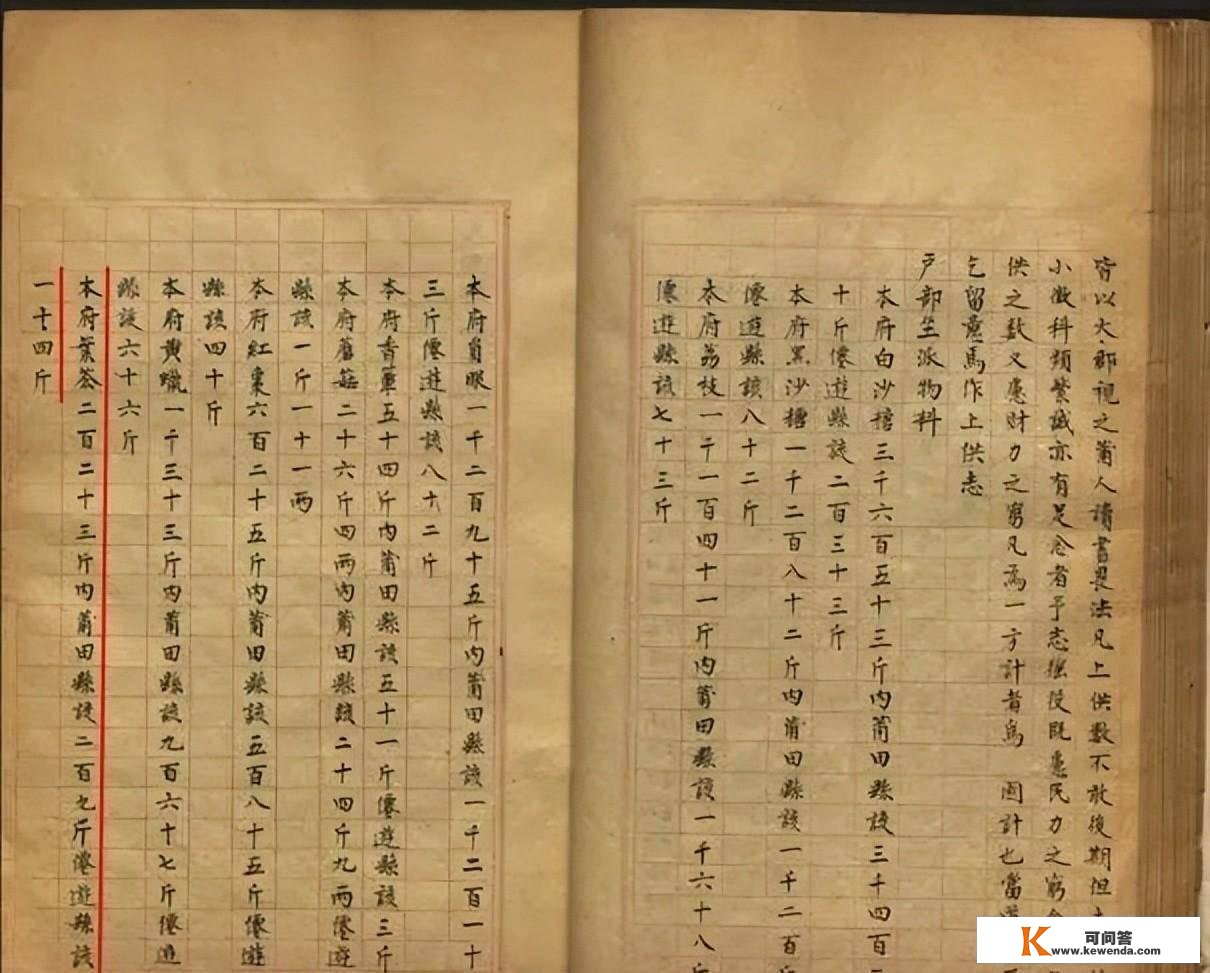 皆以大郡視之莆人讀書畏法凡上供數不敢後期但
小徵科頻繁誠亦有足念者予志徭役既患民力之窮
供之数又患財力之窮凡為一方計者烏 國計也當
乞留意焉作上供志
戶部坐派物料
本府白沙糖三千六百五十三斤内莆田縣該三千四百二
十斤僊遊縣該二百三十三斤
本府黑沙糖一千二百八十二斤内莆田縣該一千二百斤
僊遊縣該八十二斤
本府荔枝一千一百四十一斤内莆田縣該一千六十八斤
僊遊縣該七十三斤
本府眼一千二百九十五斤内莆田縣該一千二百一十
三斤僊遊縣該八十二斤
本府香蕈五十四斤内莆田縣該五十一斤僊遊縣該三斤
本府蘑菇二十六斤四兩内莆田縣該二十四斤九兩僊遊
縣該一斤一十一兩
本府紅棗六百二十五斤内莆田縣該五百八十五斤僊遊
縣該四十斤
本府黄蠟一千三十三斤内莆田縣該九百六十七斤僊遊
縣該六十六斤
本府葉茶二百二十三斤内莆田縣該二百九斤僊遊縣該
一十四斤
可问答
www.kewenda.com